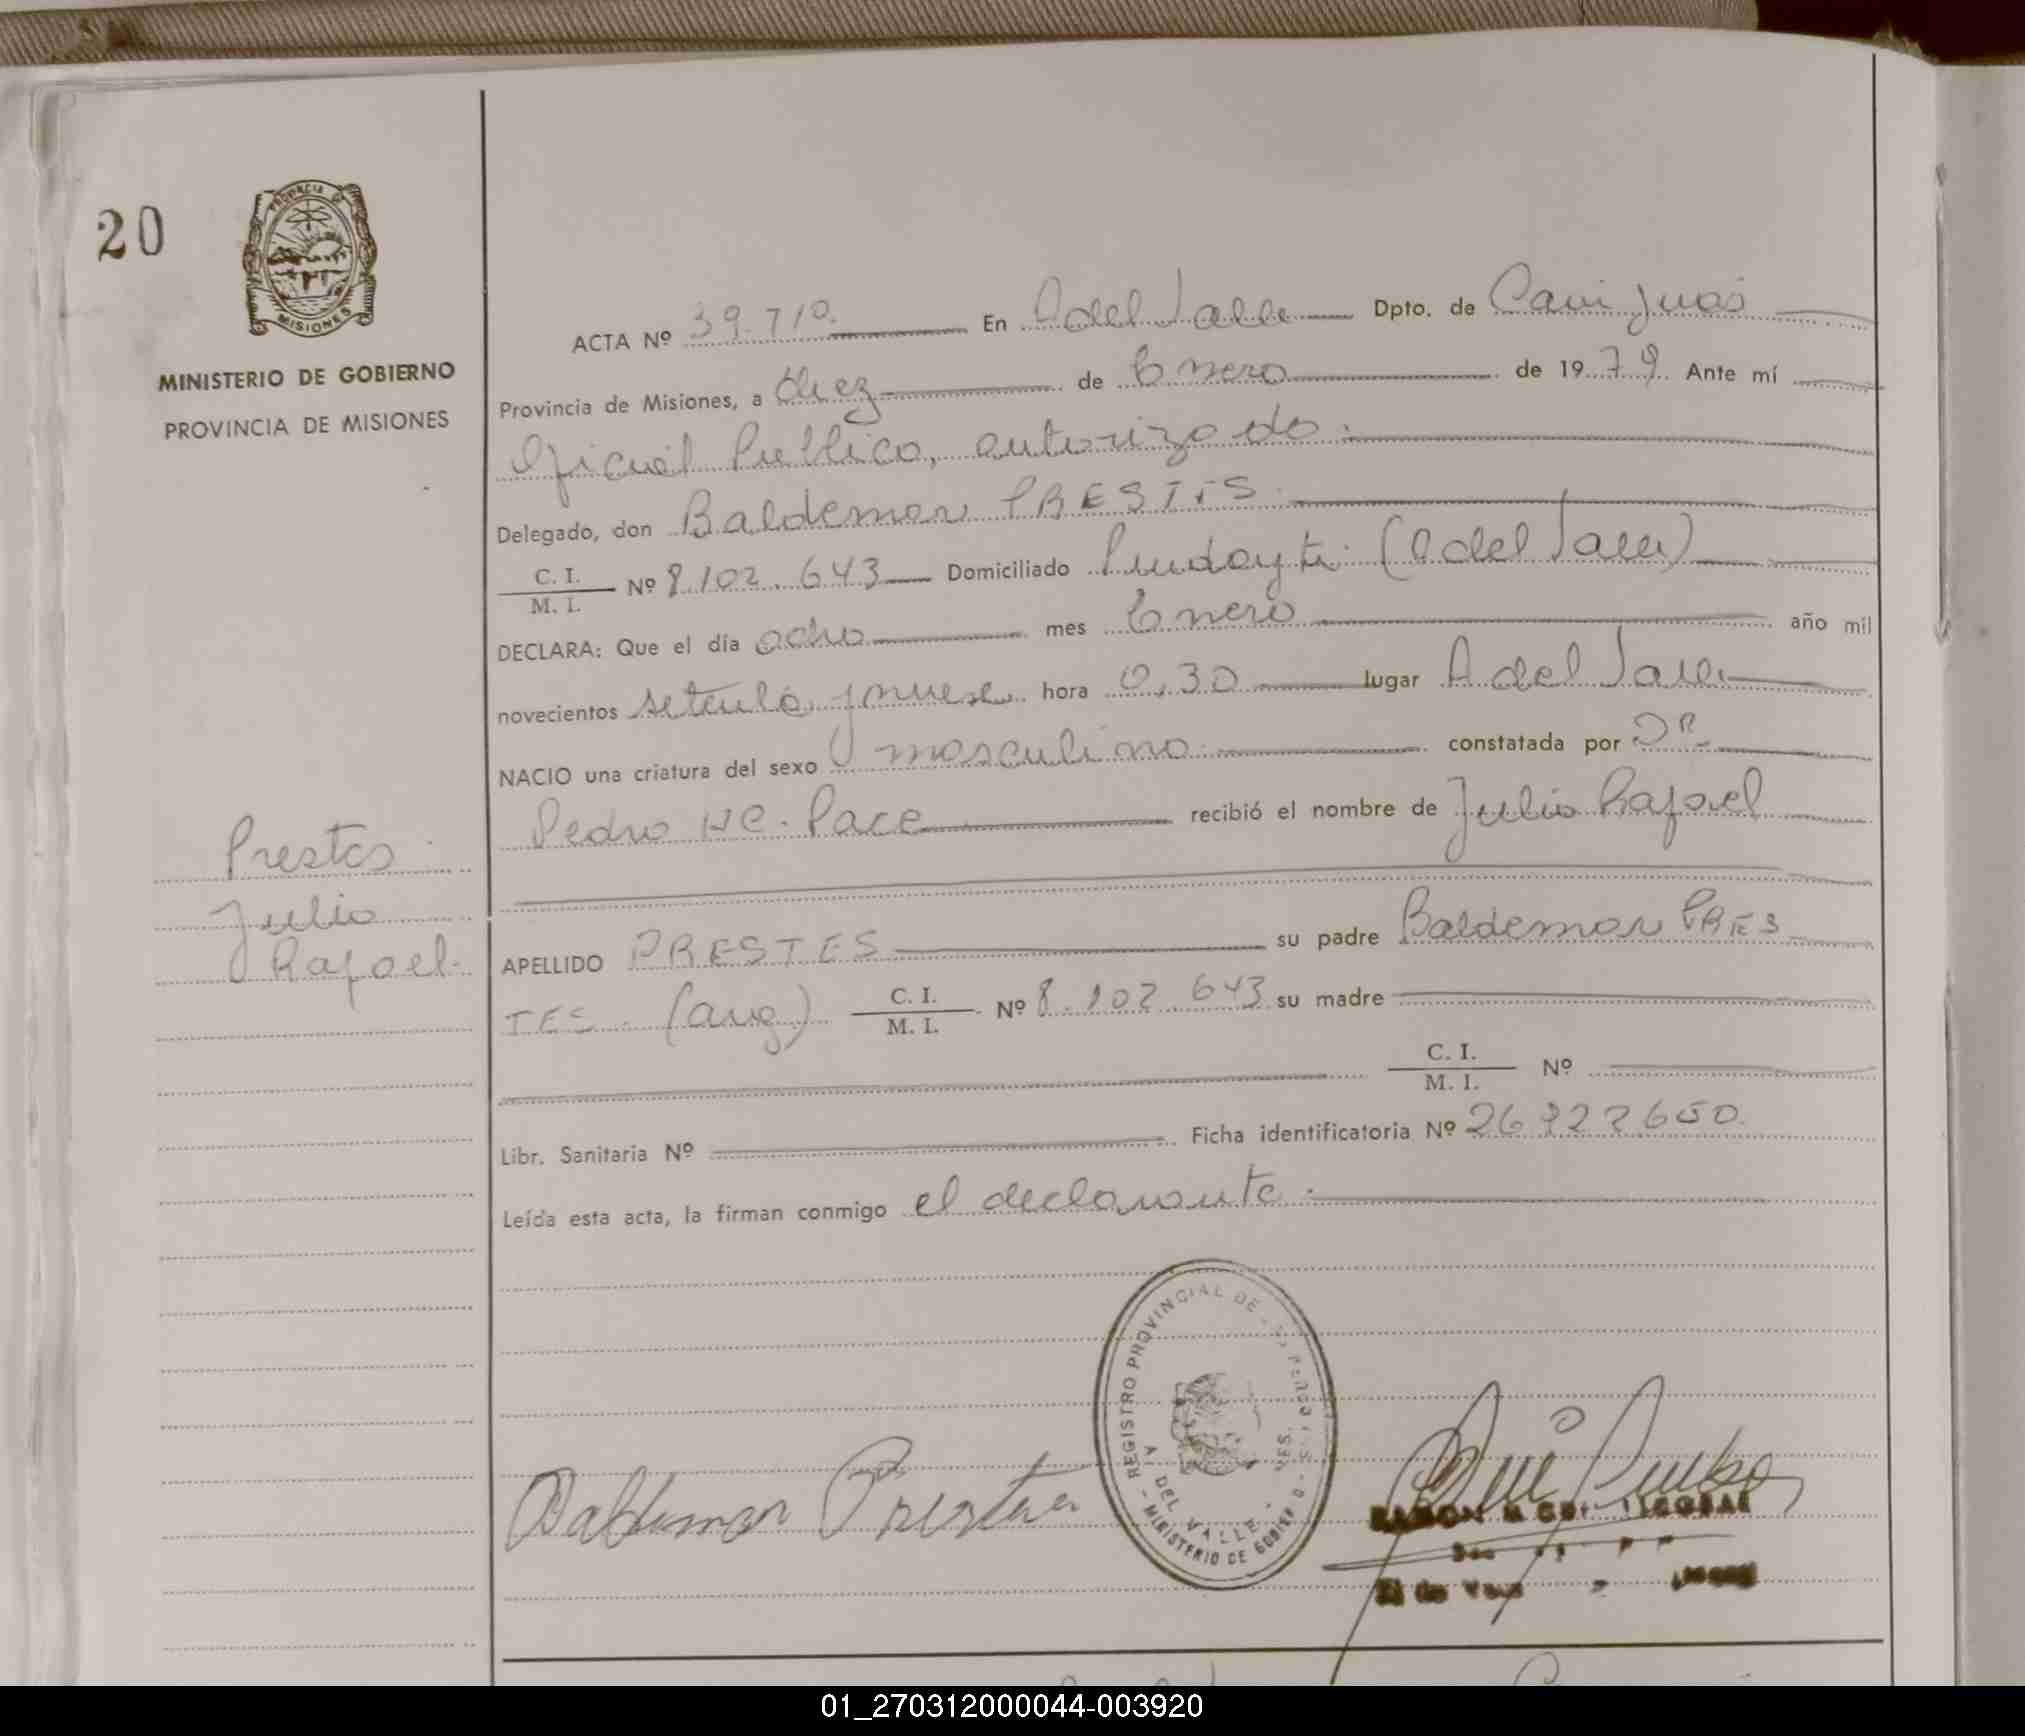 20
PROVINCIA DE
MISIONES
MINISTERIO DE GOBIERNO
PROVINCIA DE MISIONES
ACTA Nº 39.710 En A del Valle Dpto. de Cainguás
Provincia de Misiones, a diez de Enero de 1979 Ante mí
Oficial Publico, autorizado.
Delegado, don Baldemar PRESTES
C. I.
M. I. Nº 8.102.643 Domiciliado Pindayti (A del Valle)
DECLARA: Que el día ocho mes Enero año mil
novecientos setenta y nueve hora 0,30 lugar A del Valle
NACIO una criatura del sexo masculino constatada por DR
Pedro Pace recibió el nombre de Julio Rafael
Prestes
Julio
Rafael
APELLIDO PRESTES su padre Baldemar PRES
TES (arg) C. I.
M. I. Nº 8.102.643 su madre
C. I.
M. I. Nº
Libr. Sanitaria Nº Ficha identificatoria Nº
Leída esta acta, la firman conmigo el declarante.
REGISTRO PROVINCIAL DE
A DEL VALLE
MNES.
MINISTERIO DE GOBIERNO
Baldemar Prestes
RAMON
01_270312000044-003920